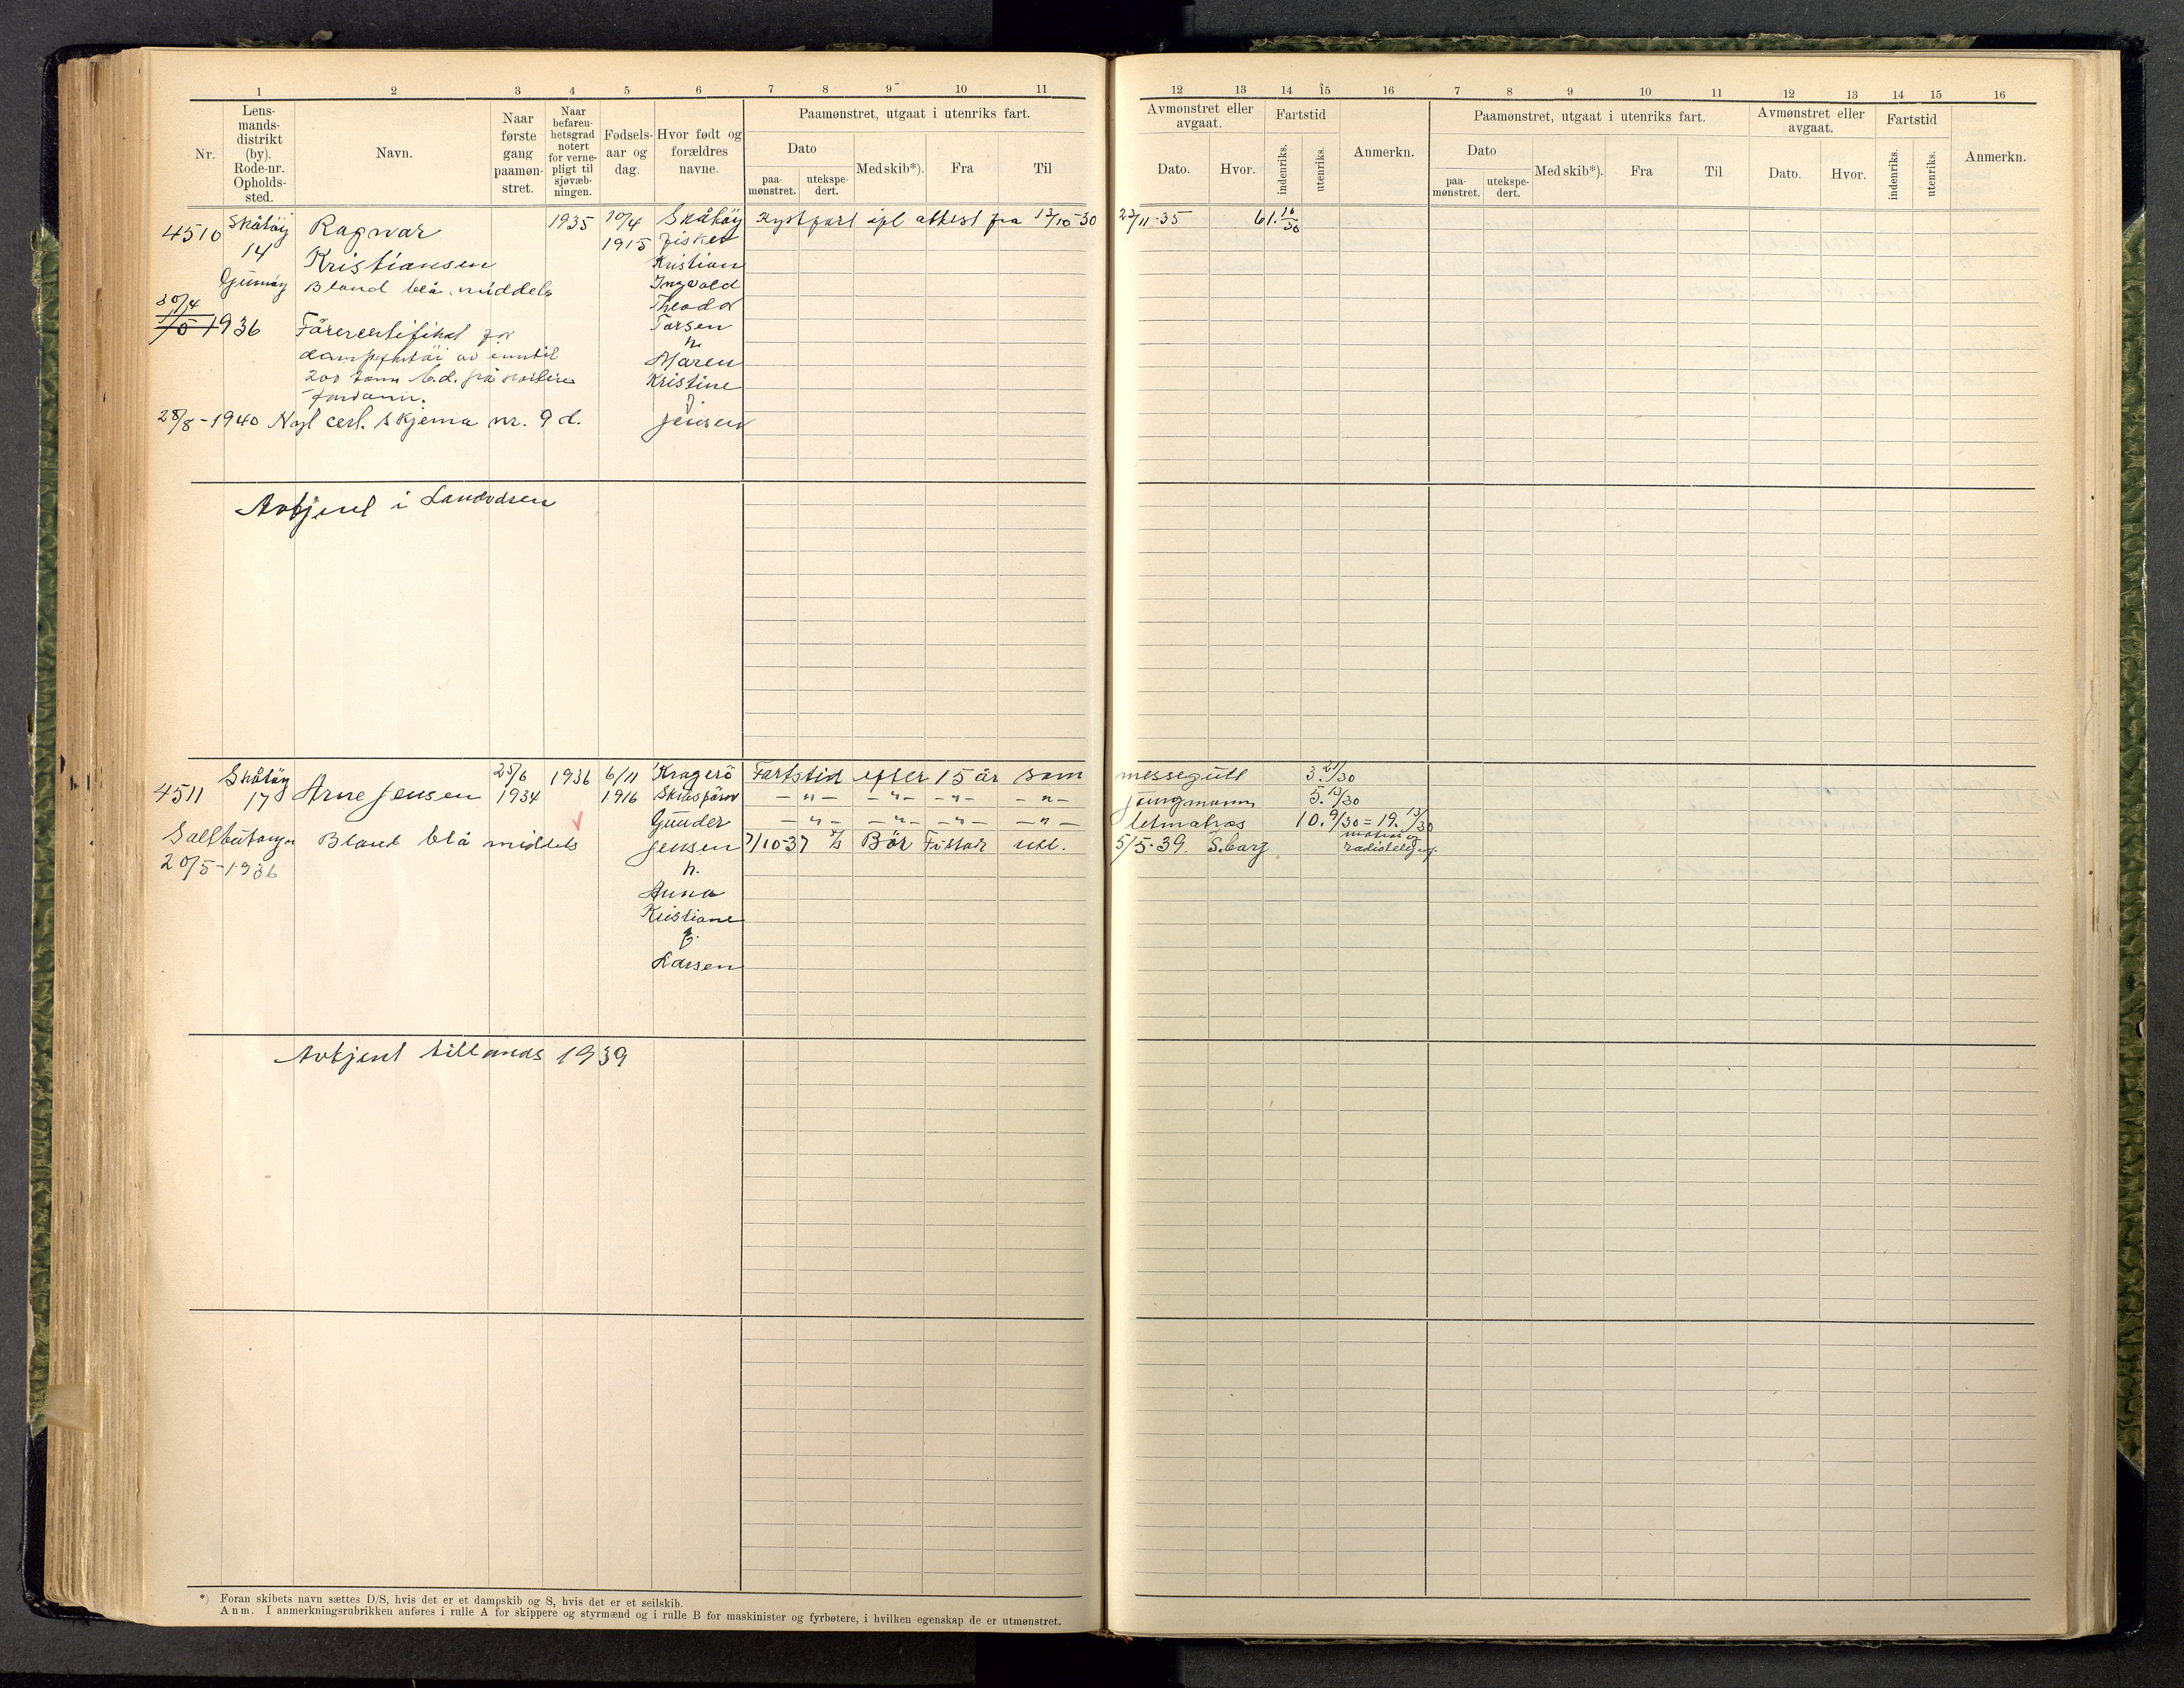 1 2 3 4 5 6 7 8 9 10 11
Nr.
Lens-
mands-
distrikt
(by).
Rode-nr.
Opholds-
sted.
Navn.
Naar
første
gang
paamøn-
stret.
Naar
befaren-
hetsgrad
notert
for verne-
pligt til
sjøvæb-
ningen.
Fødsels-
aar og
dag.
Hvor født og
forældres
navne.
Paamønstret, utgaat i utenriks fart.
Dato
paa-
mønstret.
utekspe-
dert.
Med skib*).
Fra
Til
12 13 14 15 16 7 8 9 10 11 12 13 14 15 16
Avmønstret eller
avgaat.
Dato.
Hvor.
Fartstid
indenriks.
utenriks.
Anmerkn.
Paamønstret, utgaat i utenriks fart.
Dato
paa-
mønstret.
utekspe-
dert.
Med skib*).
Fra
Til
Avmønstret eller
avgaat.
Dato.
Hvor.
Fartstid
indenriks.
utenriks.
Anmerkn.
4510
Skåtøy
14
Gumøy
30/4
1/5 1936
Ragnar
Kristiansen
Blond blå. middels
Førercertifikat for
dampfartøi av inntil
200 tonn
28/8 - 1940 Nyt cert. skjema nr. 9 d.
1935
10/4
1915
Skåtøy
fisker
Kristian
Ingvald
Theodor
Torsen
h.
Maren
Kristine
f.
Jensen
Kystfart ifl attest fra 17/10-30
27/11-35 61. 16/30
Avtjent i Landvdsen
4511
Skåtøy
17
Saltbutangen
20/5-1936
Arne Jensen
Blond blå middels
25/6
1934
1936
6/11
1916
Kragerø
Skibsfører
Gunder
Jensen
h.
Anna
Kristiane
f.
Larsen
Fartstid efter 15 år som messegutt 3. 21/30
— " — — " — — " — — " — jungmann 5. 13/30
— " — — " — — " — — " — letmatros 10. 9/30 = 19. 13/30
7/10-37 Bør utl. 5/5-39. S.barg
matros og
radiotelegraf.
Avtjent tillands 1939
*) Foran skibets navn sættes D/S, hvis det er et dampskib og S, hvis det er et seilskib.
Anm. I anmerkningsrubrikken anføres i rulle A for skippere og styrmænd og i rulle B for maskinister og fyrbøtere, i hvilken egenskap de er utmønstret.